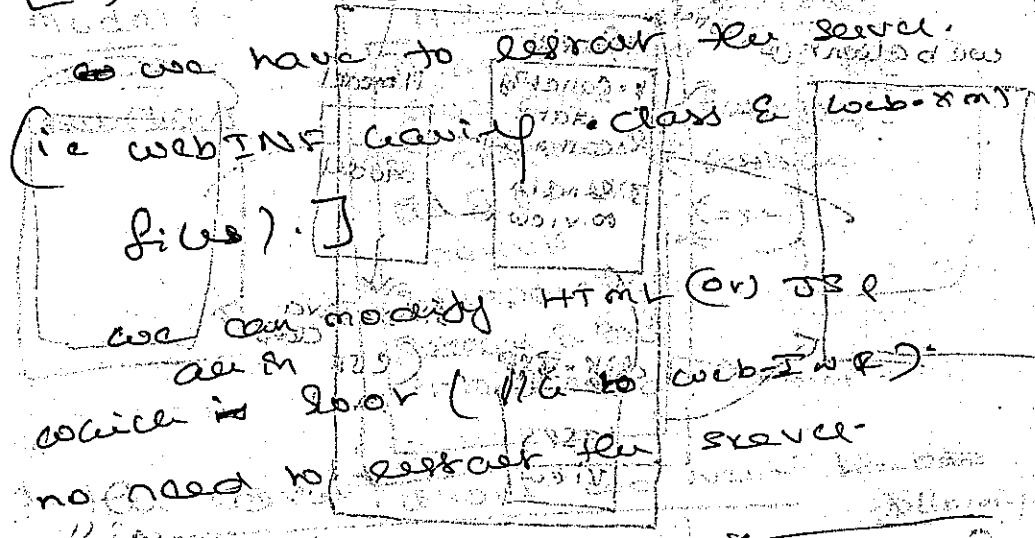 we have to restart the server.
(ie webINF having .class & web.xml
files).]
we can modify HTML (or) JSP
are in
which root (11G to web-INF).
no need to restart the server.